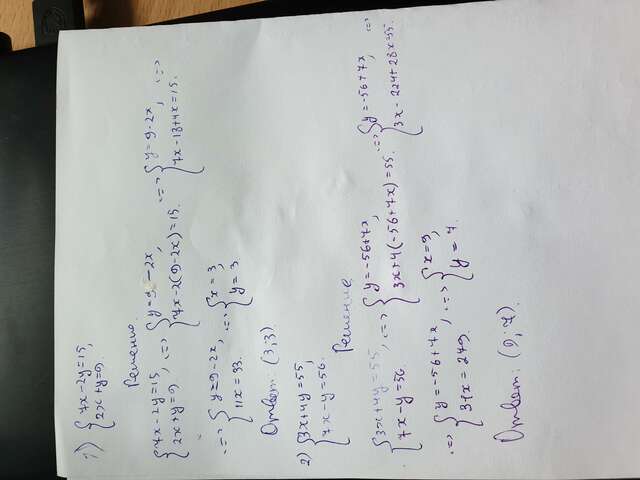 1) {7x-2y=15,
{2x+y=9.
Решение
{7x-2y=15 <=> {y=9-2x, <=> {y=9-2x, <=>
{2x+y=9, {7x-2(9-2x)=15. {7x-18+4x=15.
<=> {y=9-2x, <=> {x=3,
{11x=33. {y=3
Ответ: (3;3)
2) {3x+4y=55,
{7x-y=56.
Решение
{3x+4y=55, <=> {y=-56+7x, <=> {y=-56+7x, <=>
{7x-y=56. {3x+4(-56+7x)=55. {3x-224+28x=55.
<=> {y=-56+7x, <=> {x=9,
{31x=279. {y=7.
Ответ: (9;7).